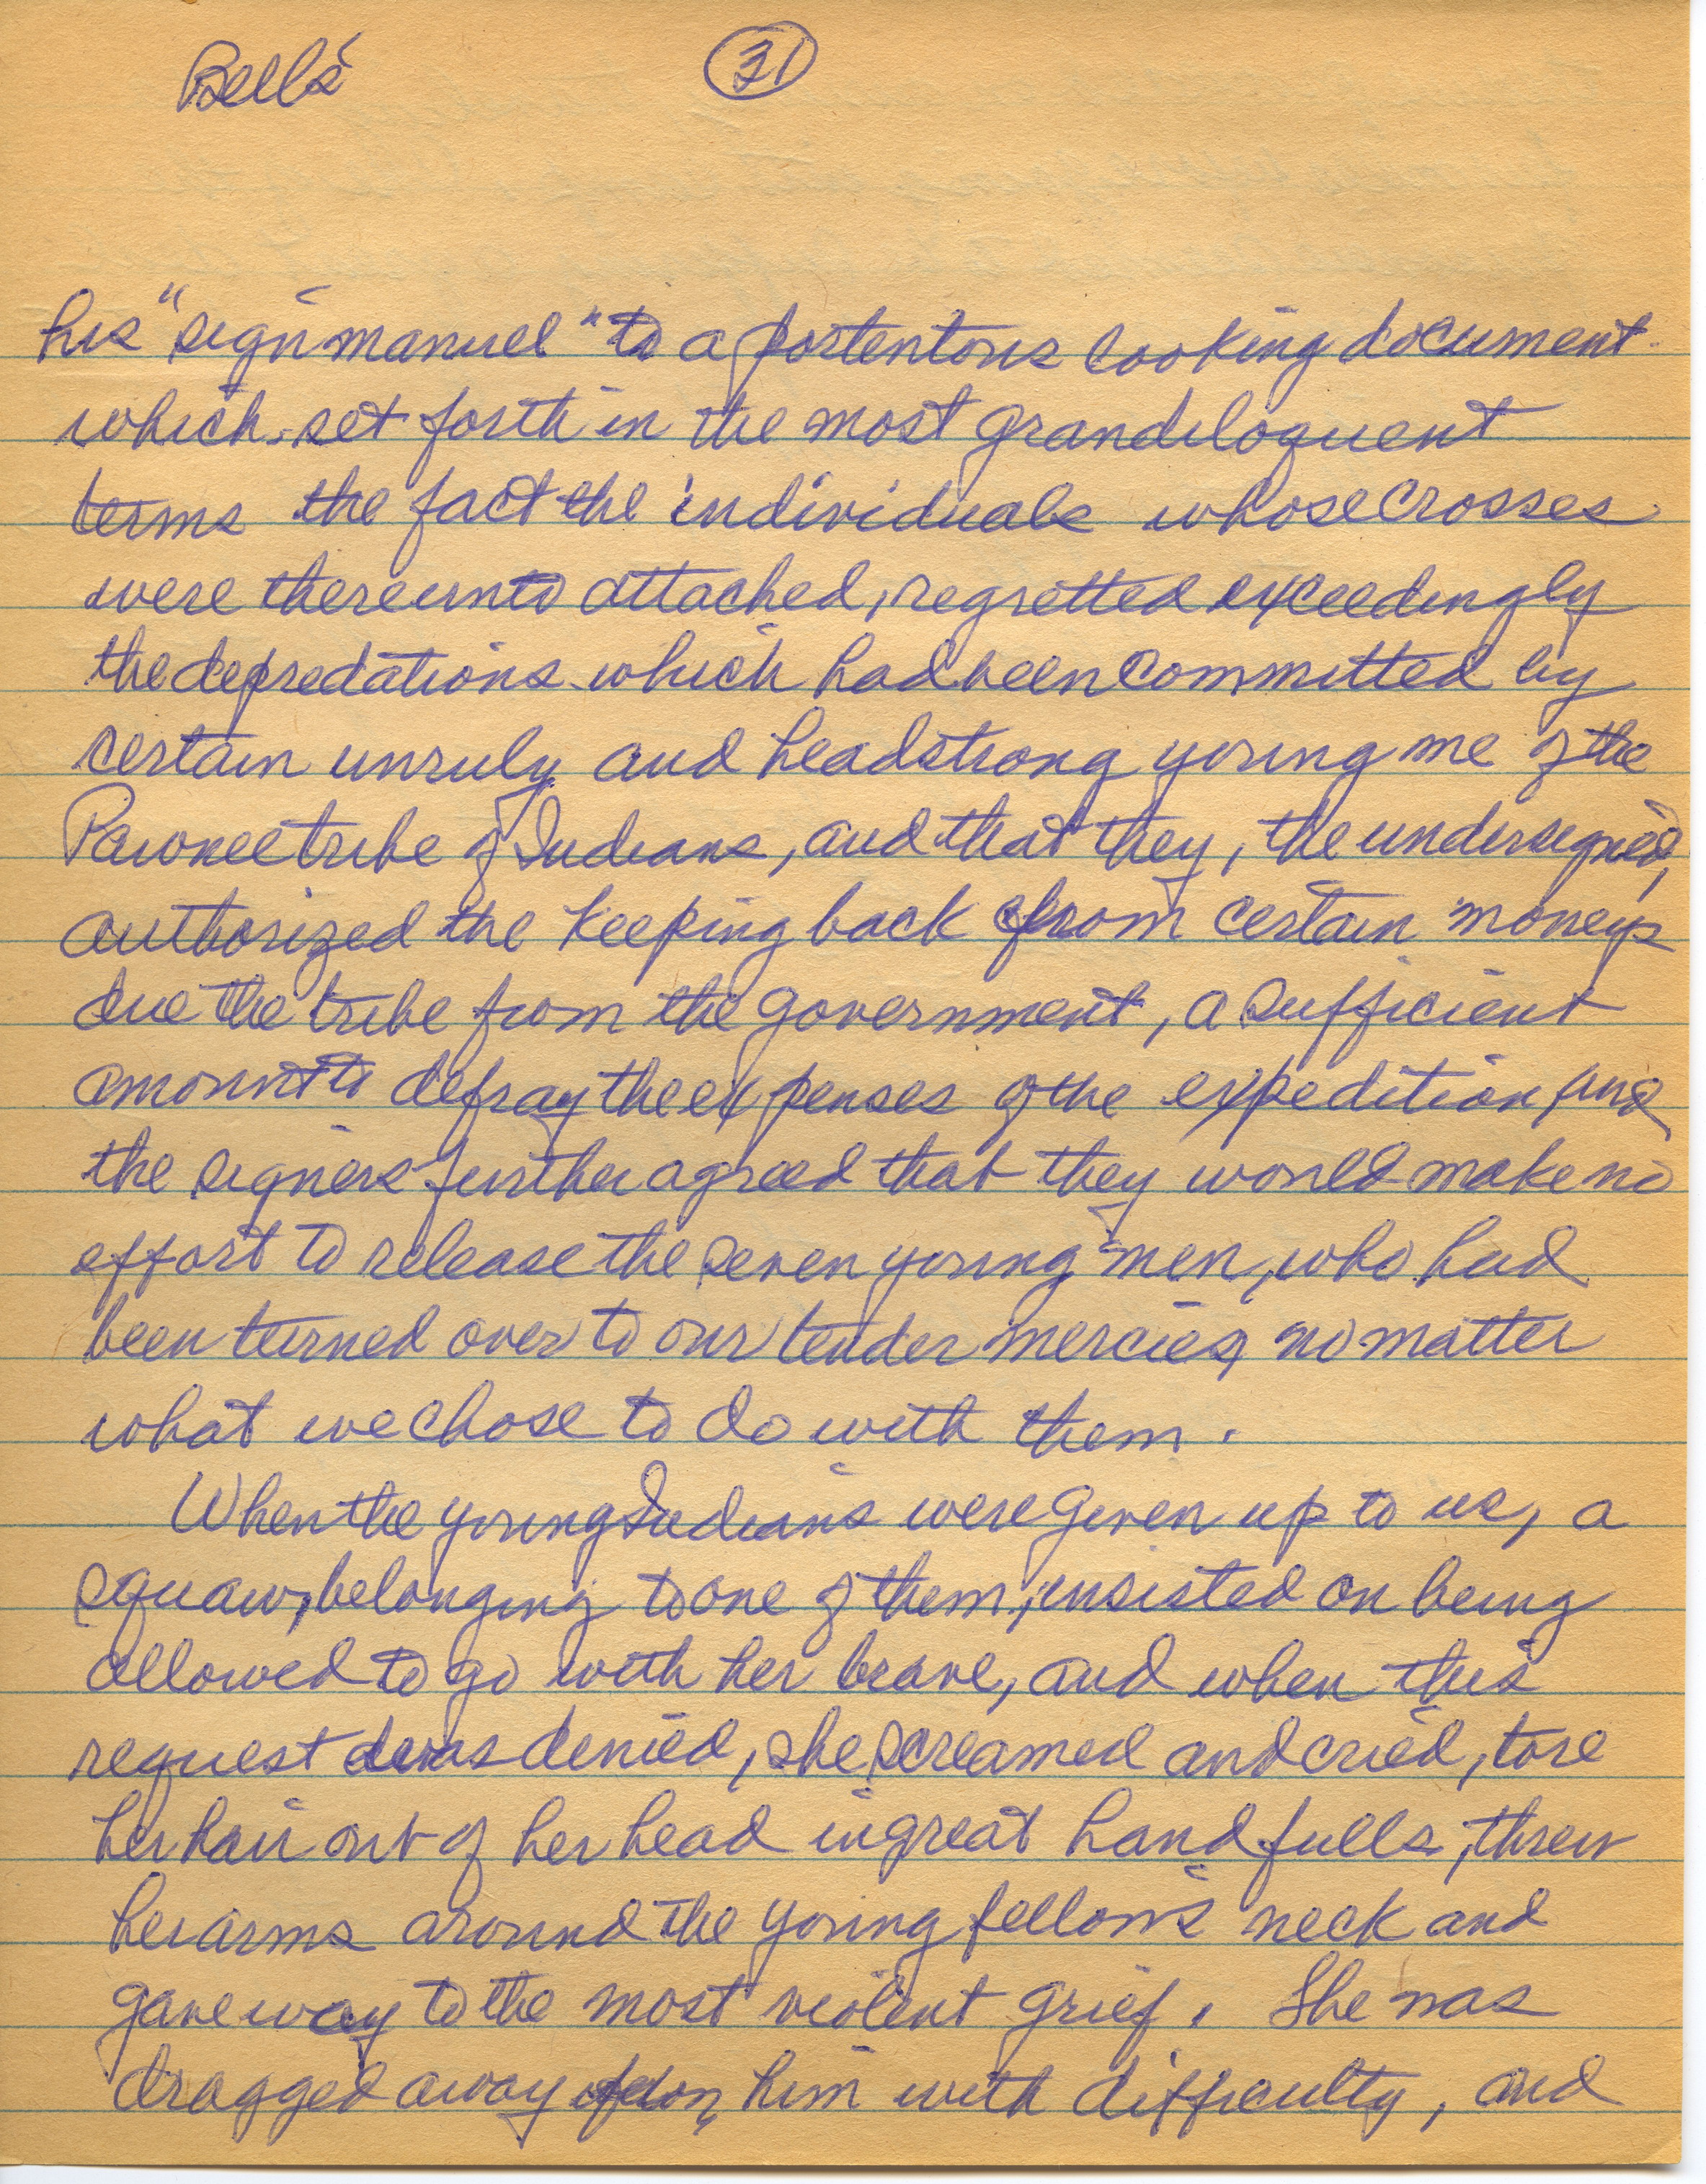 Bell's
31
his "sign manuel" to a portentous looking document
which set forth in the most grandiloquent
terms the fact the individuals whose crosses
were thereunto attached, regretted exceedingly
the depredations which had been committed by
certain unruly and headstrong young me of the
Pawnee tribe of Indians, and that they, the undersigned,
authorized the keeping back from certain moneys
due the tribe from the government, a sufficient
amount to defray the expenses of the expedition, and
the signers further agreed that they would make no
effort to release the seven young men, who had
been turned over to our tender mercies, no matter
what we chose to do with them.
When the young Indians were given up to us, a
squaw, belonging to one of them, insisted on being
allowed to go with her brave, and when this
request was denied, she screamed and cried, tore
her hair out of her head in great handfulls, threw
her arms around the young fellow's neck and
gave way to the most violent grief. She was
dragged away him with difficulty, and